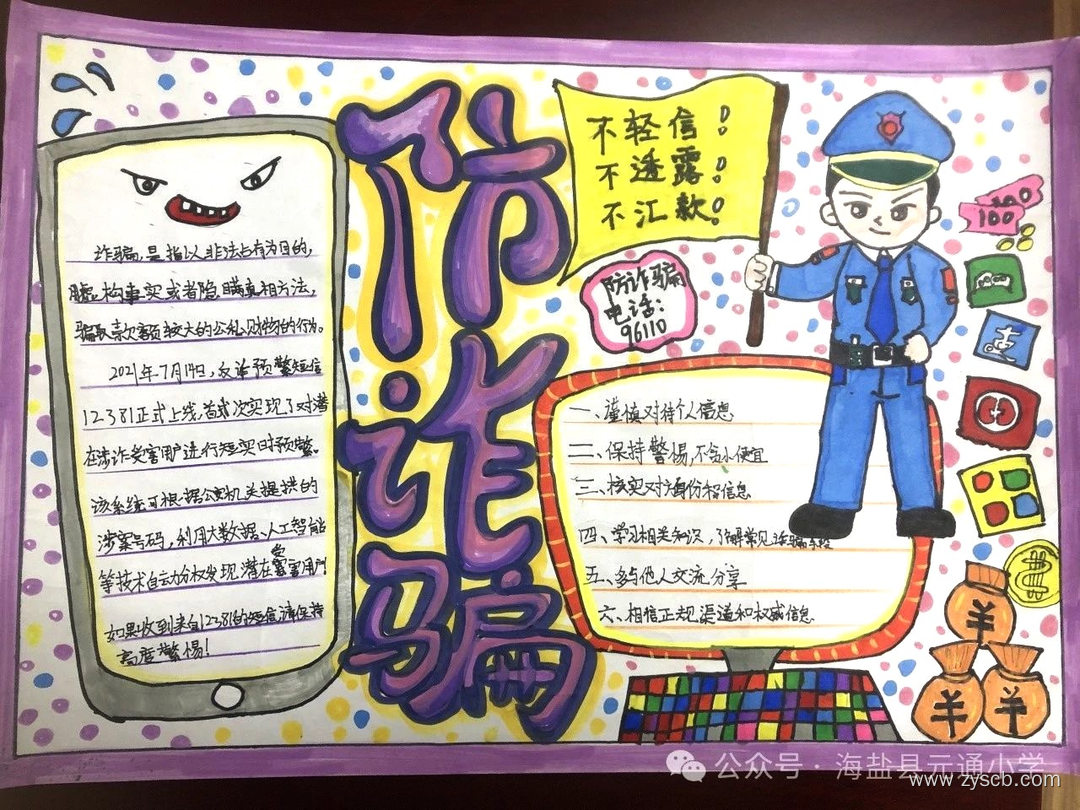 防诈骗
诈骗,是指以非法占有为目的,
虚构事实或者隐瞒真相方法,
骗取款额较大的公私财物的行为。
2021年7月14日,反诈预警短信
12381正式上线,首次实现了对潜
在涉诈受害用户进行短实时预警。
该系统可根据公安机关提拱的
涉案号码,利用大数据、人工智能
等技术自动分析发现潜在受害用户
如果收到来自12381的短信,请保持
高度警惕!
不轻信!
不透露!
不汇款!
防诈骗
电话:
96110
一、谨慎对待个人信息
二、保持警惕,不贪小便宜
三、核实对方身份和信息
四、学习相关知识,了解常见诈骗手段
五、多与他人交流分享
六、相信正规渠道和权威信息
100
100
支
羊
羊
羊
公众号·海盐县元通小学
www.zyscb.com